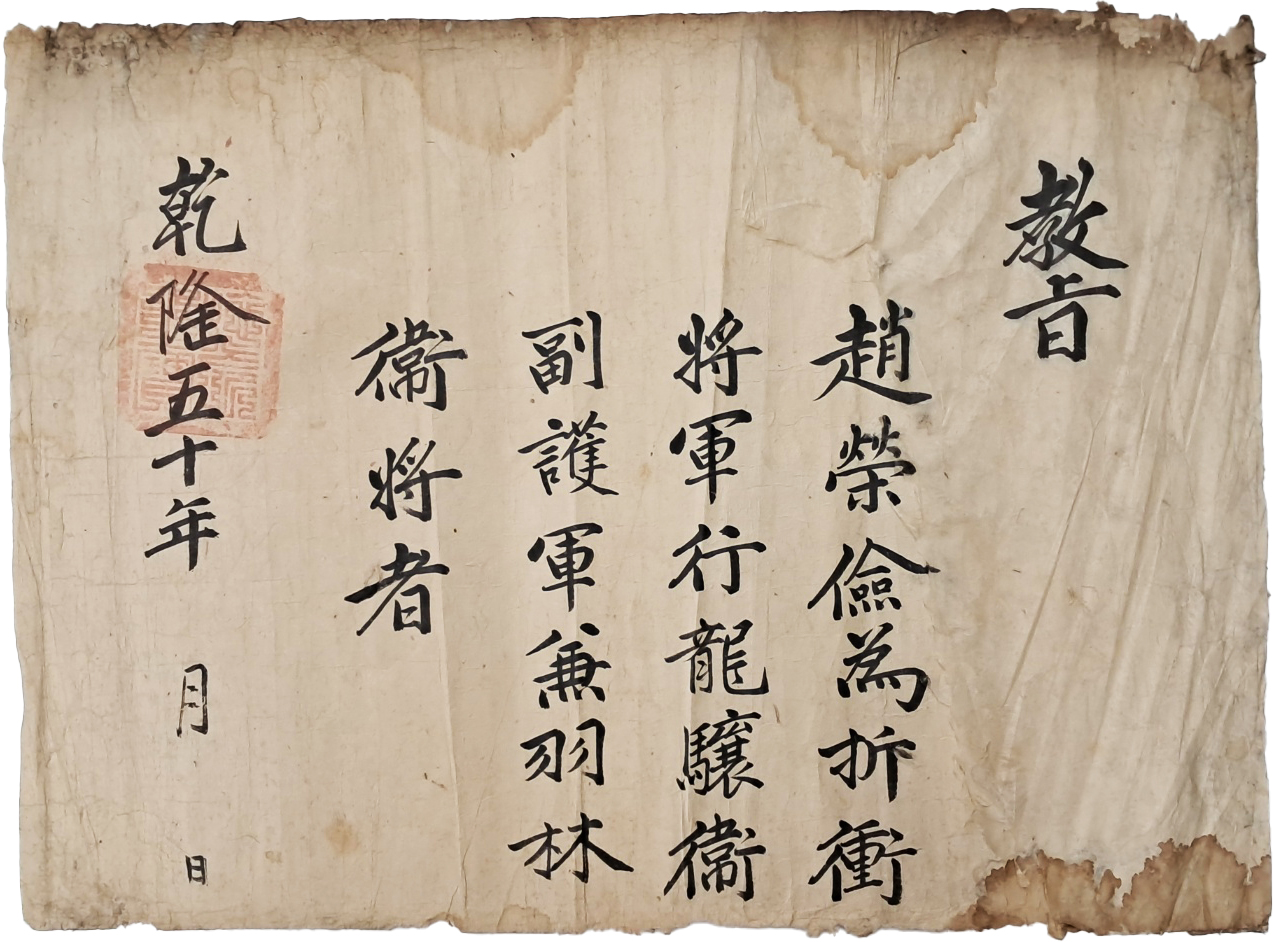 教旨
趙榮儉為折衝
將軍行龍驤衛
副護軍兼羽林
衛將者
乾隆五十年 月 日